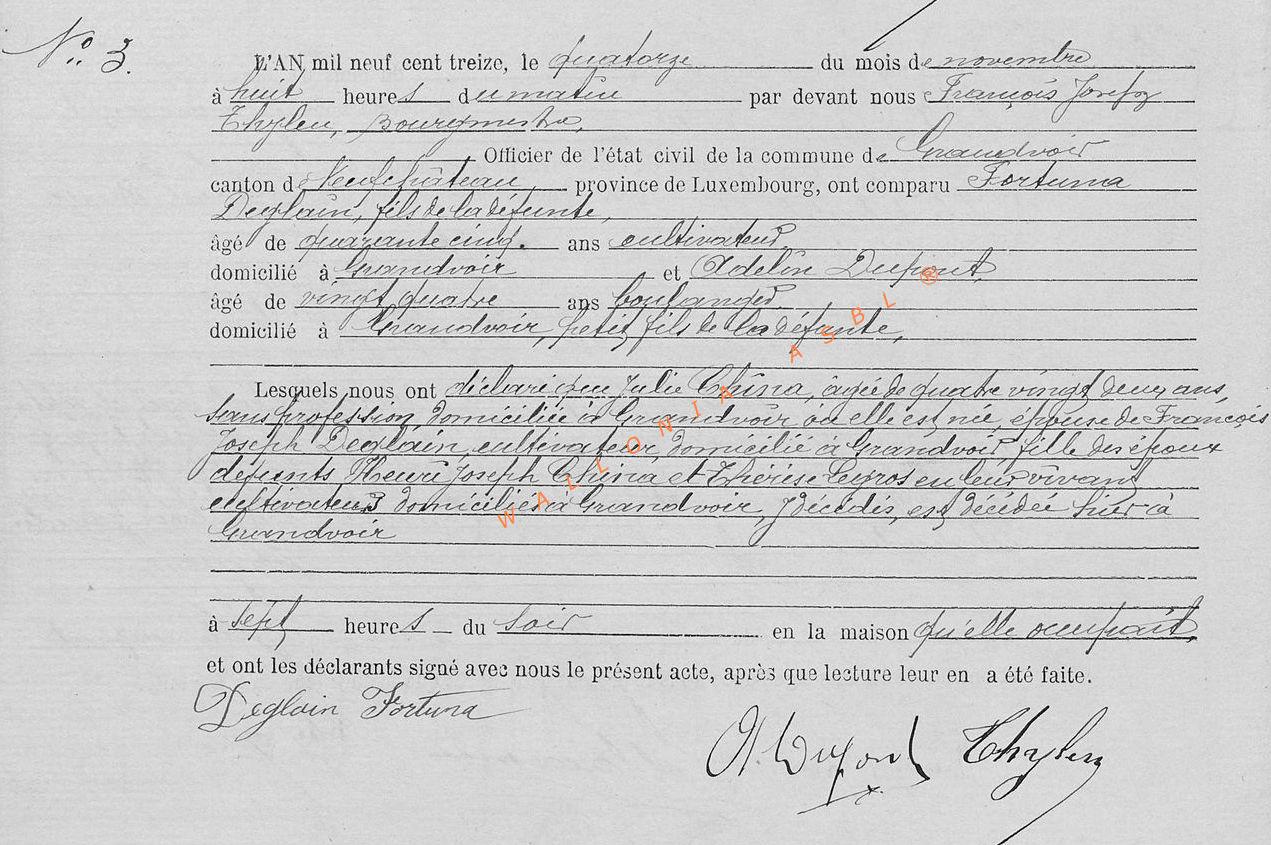 N° 3.
L'AN mil neuf cent treize, le quatorze du mois de novembre
à huit heures du matin par devant nous François Joseph
Thylen, Bourgmestre,
Officier de l'état civil de la commune de Grandvoir
canton de Neufchâteau, province de Luxembourg, ont comparu Fortuna
Deglain, fils de la défunte,
âgé de quarante cinq. ans cultivateur,
domicilié à Grandvoir et Adelin Dupont,
âgé de vingt quatre ans boulanger,
domicilié à Grandvoir, petit fils de la défunte,
Lesquels nous ont déclaré que Julie China, âgée de quatre vingt deux ans,
sans profession, domiciliée à Grandvoir où elle est née, épouse de François
Joseph Deglain, cultivateur, domicilié à Grandvoir, fille des époux
défunts Henri Joseph China et Thérèse Legros en leur vivant
cultivateurs domiciliés à Grandvoir, y décédés, est décédée hier à
Grandvoir
à sept heures du soir en la maison qu'elle occupait,
et ont les déclarants signé avec nous le présent acte, après que lecture leur en a été faite.
Deglain Fortuna
A. Dupont Thylen
WALLONIA ASBL ®